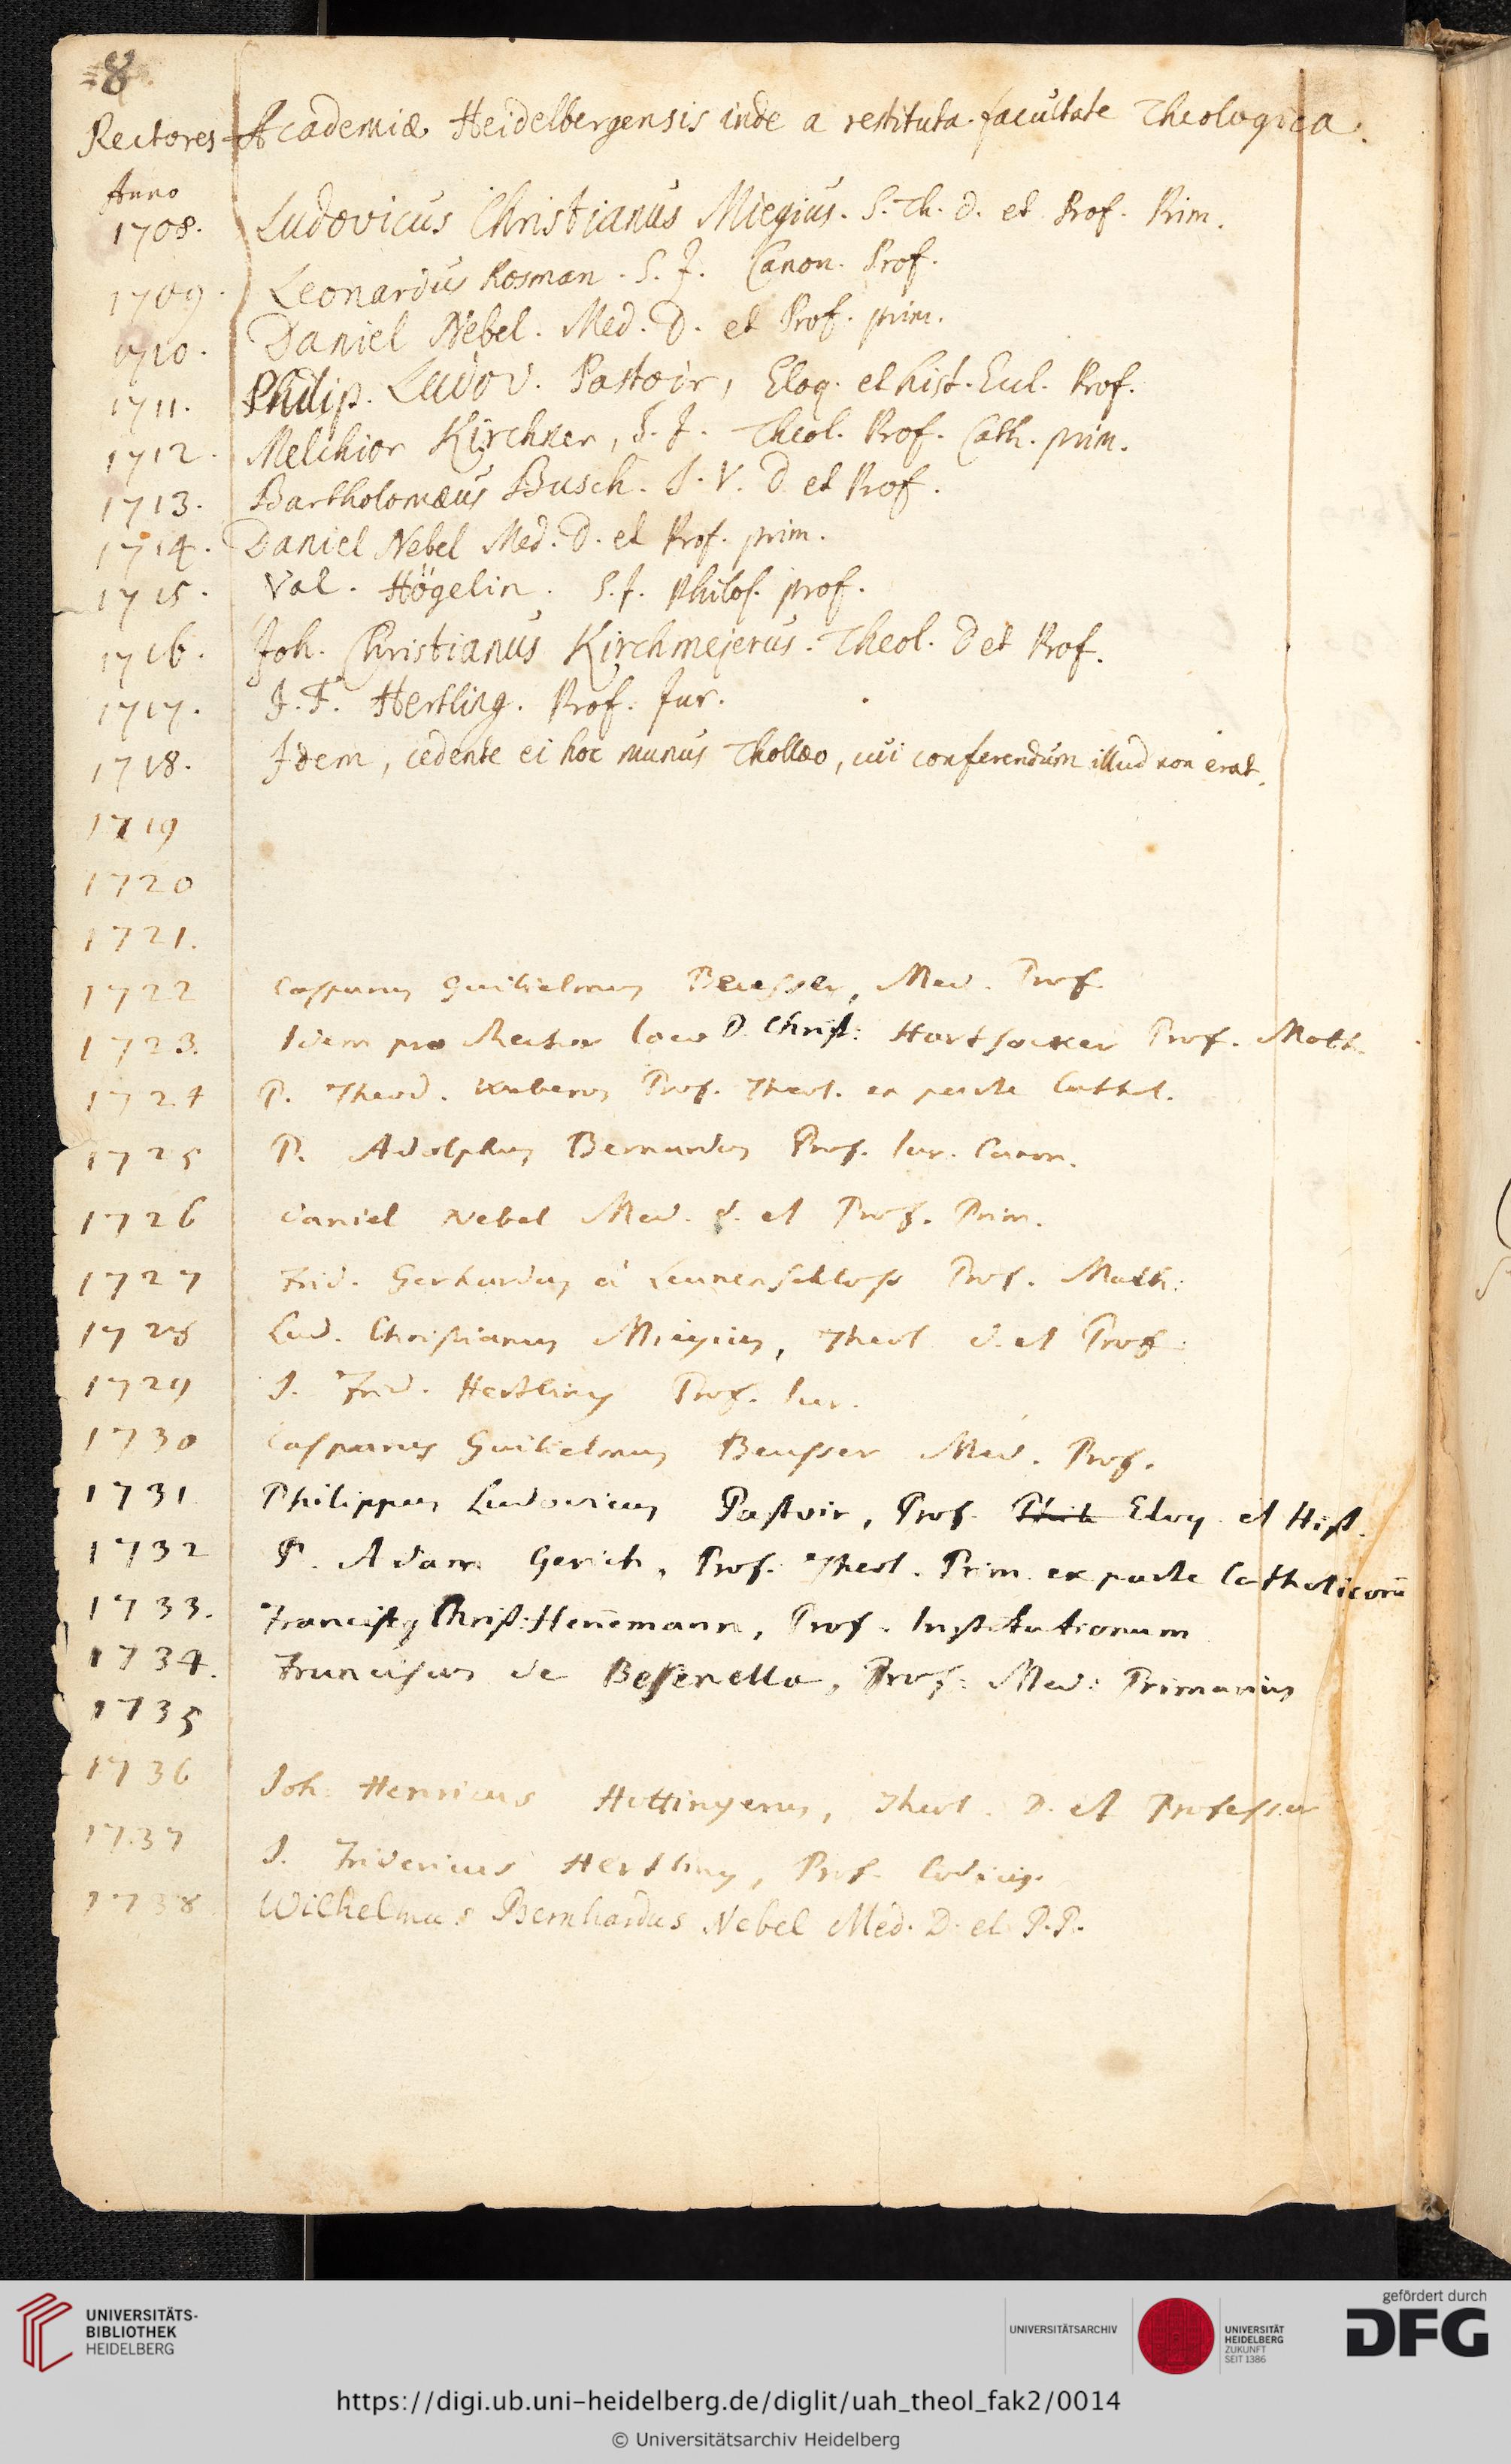 8
Rectores Academiæ Heidelbergensis inde a restituta facultate Theologica.
Anno
1708. Ludovicus Christianus Miegius. S. Th. D. et Prof. Prim.
1709. Leonardus Rosman. S. J. Canon. Prof.
1710. Daniel Nebel. Med. D. et Prof. prim.
1711. Philip. Ludov. Pastoir, Eloq. et hist. Eccl. Prof.
1712. Melchior Kirchner, S. J. Theol. Prof. Cath. prim.
1713. Bartholomæus Busch. J. V. D. et Prof.
1714. Daniel Nebel Med. D. et Prof. prim.
1715. Val. Högelin. S. J. Philos. prof.
1716. Joh. Christianus Kirchmejerus. Theol. D et Prof.
1717. J. F. Hertling. Prof. Jur.
1718. Idem, cedente ei hoc munus Tholläo, cui conferendum illud non erat.
1719
1720
1721.
1722 Casparus Guilielmus Beusser, Med. Prof
1723. Idem pro Rector loco D. Christ: Hartsoeker Prof. Math.
1724 P. Theod. Prof. Theol. ex parte Cathol.
1725 P. Adolphus Bernardus Prof. Iur. Canon.
1726 Daniel Nebel Med. D. et Prof. Prim.
1727 Frid. Gerhardus á Leunenschloss Prof. Math:
1728 Lud. Christianus Miegius, Theol D. et Prof:
1729 J. Frid. Hertling Prof. Iur.
1730 Casparus Guilielmus Beusser Med. Prof.
1731 Philippus Ludovicus Pastoir, Prof. Eloq. et Hist.
1732 P. Adam Gerich, Prof. Theol. Prim. ex parte Catholicorū
1733. Franciscus Christ: Hen̄emann, Prof. Institutionum
1734. Franciscus de Bessenella, Prof: Med: Primarius
1735
1736 Joh. Henricus Hottingerus, Theol. D. et Professor
1737 J. Fridericus Hertling, Prof. Codicis.
1738 Wilhelmus Bernhardus Nebel Med. D. et P. P.
UNIVERSITÄTS-
BIBLIOTHEK
HEIDELBERG
UNIVERSITÄTSARCHIV
UNIVERSITÄT
HEIDELBERG
ZUKUNFT
SEIT 1386
gefördert durch
DFG
https://digi.ub.uni-heidelberg.de/diglit/uah_theol_fak2/0014
© Universitätsarchiv Heidelberg